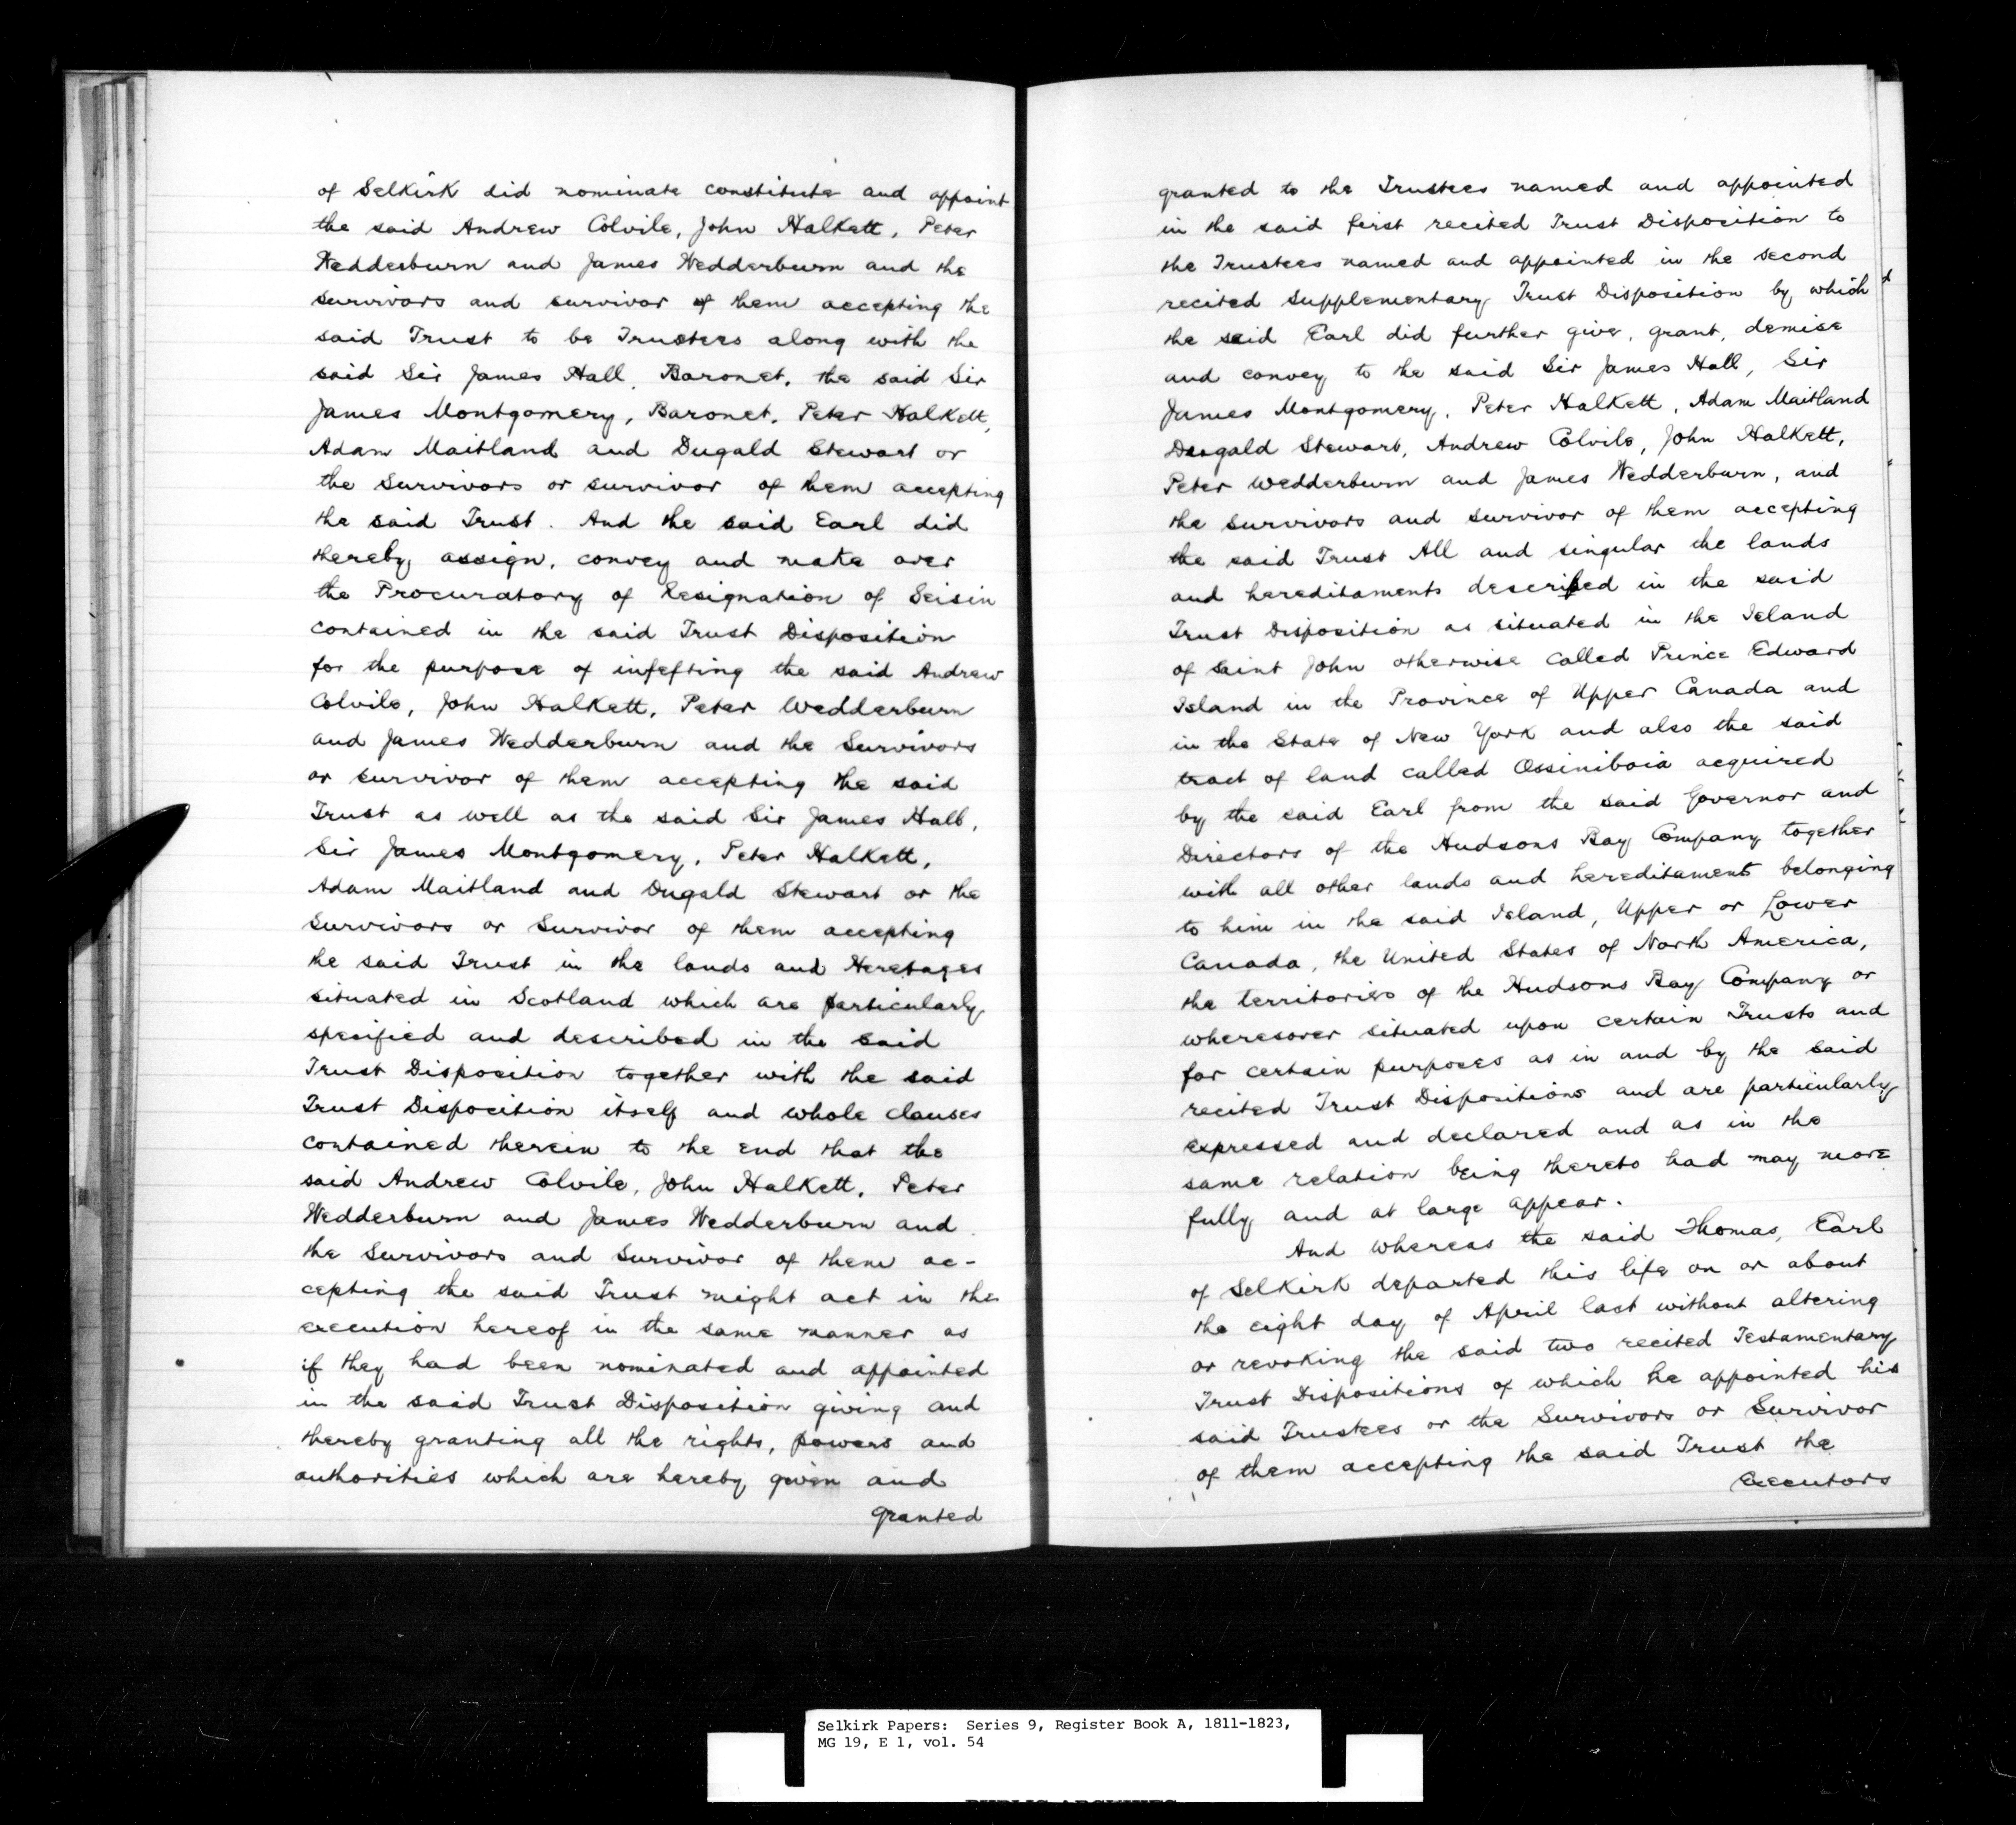 of Selkirk did nominate constitute and appoint
the said Andrew Colvile, John Halkett, Peter
Wedderburn and James Wedderburn and the
survivors and survivor of them accepting the
said Trust to be Trustees along with the
said Sir James Hall, Baronet, the said Sir
James Montgomery, Baronet, Peter Halkett,
Adam Maitland and Dugald Stewart or
the Survivors or survivor of them accepting
the said Trust. And the said Earl did
thereby assign, convey and make over
the Procuratory of Resignation of Seisin
contained in the said Trust Disposition
for the purpose of infefting the said Andrew
Colvile, John Halkett, Peter Wedderburn
and James Wedderburn and the Survivors
or survivor of them accepting the said
Trust as well as the said Sir James Hall,
Sir James Montgomery, Peter Halkett,
Adam Maitland and Dugald Stewart or the
Survivors or Survivor of them accepting
the said Trust in the lands and Heretages
situated in Scotland which are particularly
specified and described in the said
Trust Disposition together with the said
Trust Disposition itself and whole clauses
contained therein to the end that the
said Andrew Colvile, John Halkett, Peter
Wedderburn and James Wedderburn and
the Survivors and Survivor of them ac-
cepting the said Trust might act in the
execution hereof in the same manner as
if they had been nominated and appointed
in the said Trust Disposition giving and
thereby granting all the rights, powers and
authorities which are hereby given and
granted
granted to the Trustees named and appointed
in the said first recited Trust Disposition to
the Trustees named and appointed in the second
recited Supplementary Trust Disposition by which
the said Earl did further give, grant, demise
and convey to the said Sir James Hall, Sir
James Montgomery, Peter Halkett, Adam Maitland
Dougald Stewart, Andrew Colvile, John Halkett,
Peter Wedderburn and James Wedderburn, and
the survivors and survivor of them accepting
the said Trust All and singular the lands
and hereditaments described in the said
Trust Disposition as situated in the Island
of Saint John otherwise called Prince Edward
Island in the Province of Upper Canada and
in the State of New York and also the said
tract of land called Ossiniboia acquired
by the said Earl from the said Governor and
Directors of the Hudsons Bay Company together
with all other lands and hereditaments belonging
to him in the said Island, Upper or Lower
Canada, the United States of North America,
the territories of the Hudsons Bay Company or
wheresover situated upon certain Trusts and
for certain purposes as in and by the said
recited Trust Dispositions and are particularly
expressed and declared and as in the
same relation being thereto had may more
fully and at large appear.
And whereas the said Thomas, Earl
of Selkirk departed this life on or about
the eight day of April last without altering
or revoking the said two recited Testamentary
Trust Dispositions of which he appointed his
said Trustees or the Survivors or Survivor
of them accepting the said Trust the
Executors
Selkirk Papers: Series 9, Register Book A, 1811-1823,
MG 19, E 1, vol. 54